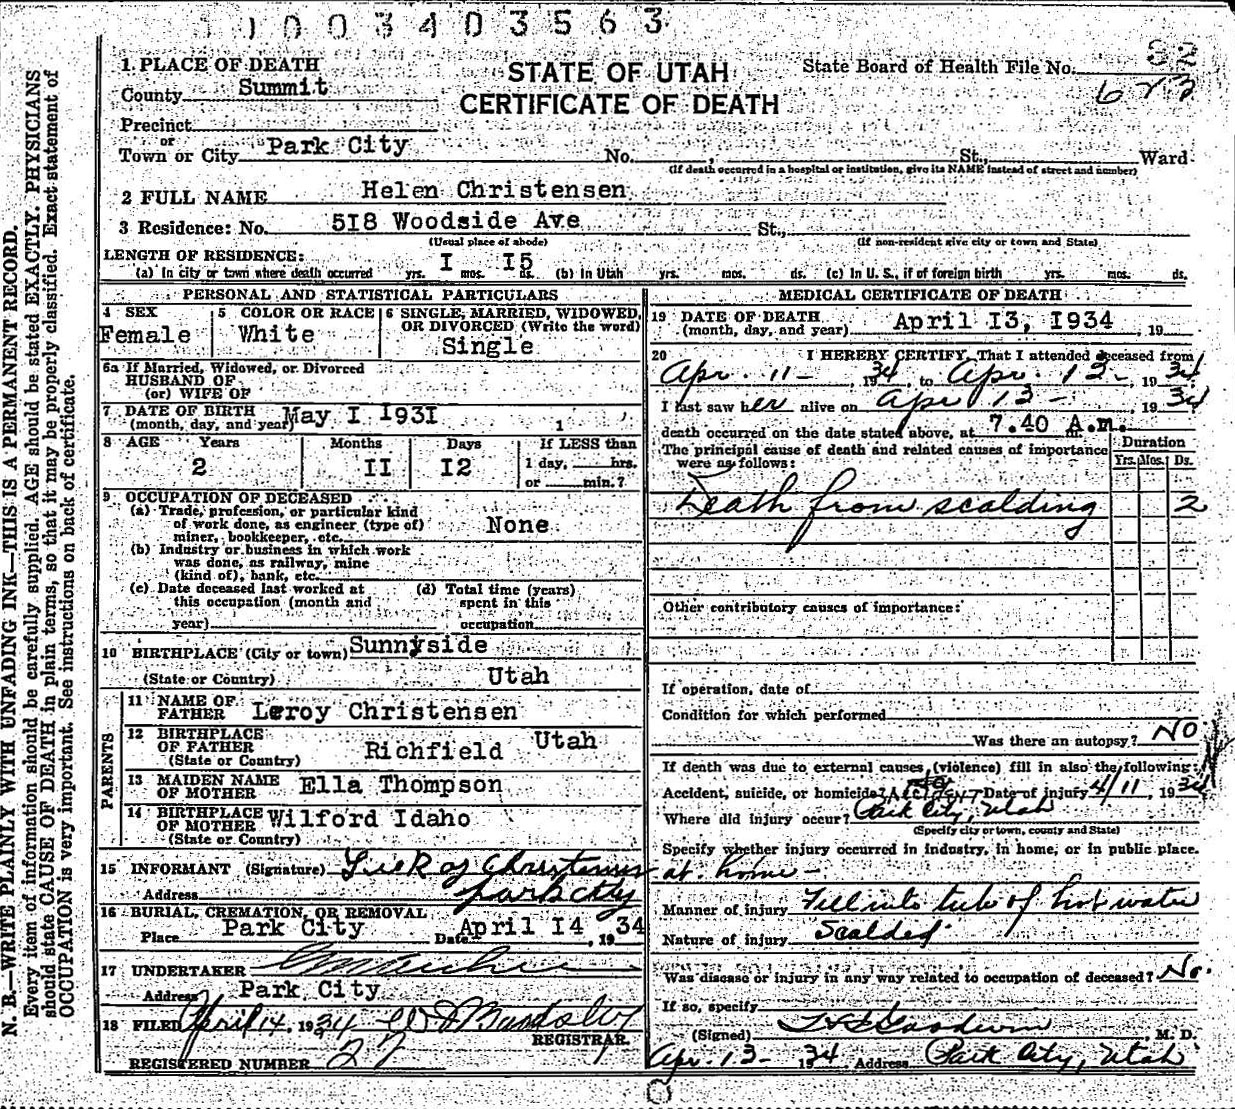 1003403563
1. PLACE OF DEATH
STATE OF UTAH
State Board of Health File No. 82
County Summit
CERTIFICATE OF DEATH
673
Precinct
or
Town or City Park City No. , St., Ward
(If death occurred in a hospital or institution, give its NAME instead of street and number)
2 FULL NAME Helen Christensen
3 Residence: No. 518 Woodside Ave St.,
(Usual place of abode) (If non-resident give city or town and State)
LENGTH OF RESIDENCE:
(a) In city or town where death occurred yrs. I mos. I5 ds. (b) in Utah yrs. mos. ds. (c) In U. S., if of foreign birth yrs. mos. ds.
PERSONAL AND STATISTICAL PARTICULARS
4 SEX Female
5 COLOR OR RACE White
6 SINGLE, MARRIED, WIDOWED, OR DIVORCED (Write the word) Single
6a If Married, Widowed, or Divorced
HUSBAND OF
(or) WIFE OF
7 DATE OF BIRTH
(month, day, and year) May I I93I 1
8 AGE Years Months Days If LESS than
2 II I2 1 day, hrs.
or min.?
9 OCCUPATION OF DECEASED
(a) Trade, profession, or particular kind
of work done, as engineer (type of)
miner, bookkeeper, etc. None
(b) Industry or business in which work
was done, as railway, mine
(kind of), bank, etc.
(c) Date deceased last worked at
this occupation (month and
year)
(d) Total time (years)
spent in this
occupation
10 BIRTHPLACE (City or town) Sunnyside
(State or Country) Utah
PARENTS
11 NAME OF
FATHER Leroy Christensen
12 BIRTHPLACE
OF FATHER
(State or Country) Richfield Utah
13 MAIDEN NAME
OF MOTHER Ella Thompson
14 BIRTHPLACE
OF MOTHER
(State or Country) Wilford Idaho
15 INFORMANT (Signature) Christensen
Address Park City
16 BURIAL, CREMATION, OR REMOVAL
Place Park City Date April I4, 1934
17 UNDERTAKER
Address Park City
18 FILED April 14, 1934
REGISTRAR.
REGISTERED NUMBER 27
MEDICAL CERTIFICATE OF DEATH
19 DATE OF DEATH
(month, day, and year) April I3, I934 , 19
20 I HEREBY CERTIFY, That I attended deceased from
Apr. 11- 1934, to Apr. 13- 1934
I last saw her alive on Apr 13- 1934
death occurred on the date stated above, at 7.40 A.m. m.
The principal cause of death and related causes of importance
were as follows:
Duration
Yrs. Mos. Ds.
Death from scalding 2
Other contributory causes of importance:
If operation, date of
Condition for which performed
Was there an autopsy? NO
If death was due to external causes (violence) fill in also the following:
Accident, suicide, or homicide? ACCIDENT Date of injury 4/11, 1934
Where did injury occur? Park City, Utah
(Specify city or town, county and State)
Specify whether injury occurred in industry, in home, or in public place.
at home -
Manner of injury Fell into tub of hot water
Nature of injury Scalded.
Was disease or injury in any way related to occupation of deceased? No.
If so, specify
(Signed) Goodwin M. D.
Apr. 13- 1934 Address Park City, Utah
N. B.—WRITE PLAINLY WITH UNFADING INK—THIS IS A PERMANENT RECORD.
Every item of information should be carefully supplied. AGE should be stated EXACTLY. PHYSICIANS
should state CAUSE OF DEATH in plain terms, so that it may be properly classified. Exact statement of
OCCUPATION is very important. See instructions on back of certificate.